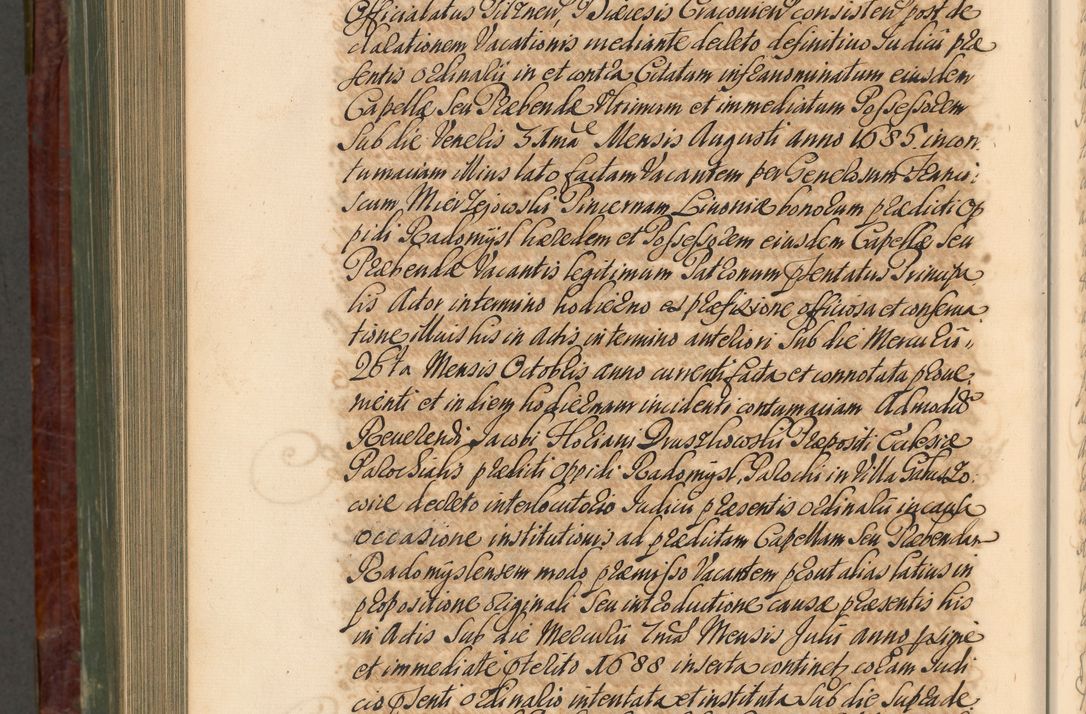 Officialatus Pilznen, Diæcesis Cracouien consisten post de
clarationem Vacationis mediante decreto definitiuo Iudicii præ
sentis Ordinarii in et contra Citatam infranominatum eiusdem
Capellæ seu Præbendæ Vltimum et immediatum Possessorem
sub die Veneris 31ma Mensis Augusti anno 1685. in con
tumaciam illius lato factam Vacantem per Generosum Franci:
scum Mierzejowski Pincernam Liuoniæ bonorum prædicti Op
pidi Radomysl hæredem et Possessorem eiusdem Capellæ seu
Præbendæ Vacantis legitimum Patronum pñtentatus Principa
lis Actor in termino hodierno ex præfixione officiosa et conserua
tione illius his in Actis in termino anteriori sub die Mercurii
26ta Mensis Octobris anno currenti facta et connotata proue:
nienti et in diem hodiernam incidenti contumaciam Admodũ
Reuerendi Iacobi Floriani Druszkowski Præpositi Ecclesiæ
Parochialis prædicti oppidi Radomysl, Parochi in Villa
decreto interlocutorio Iudicii præsentis ordinarii in causa
occasione institutionis ad prædictam Capellam seu Præbendam
Radomyslensem modo præmisso Vacantem prout alias latius in
propositione originali seu introductione causæ præsentis his
in Actis sub die Mercurii Mensis Julii anno proxime
et immediate pterito 1688 inserta continet coram Iudi
cio psenti ordinario intentata et instituta sub die supra de